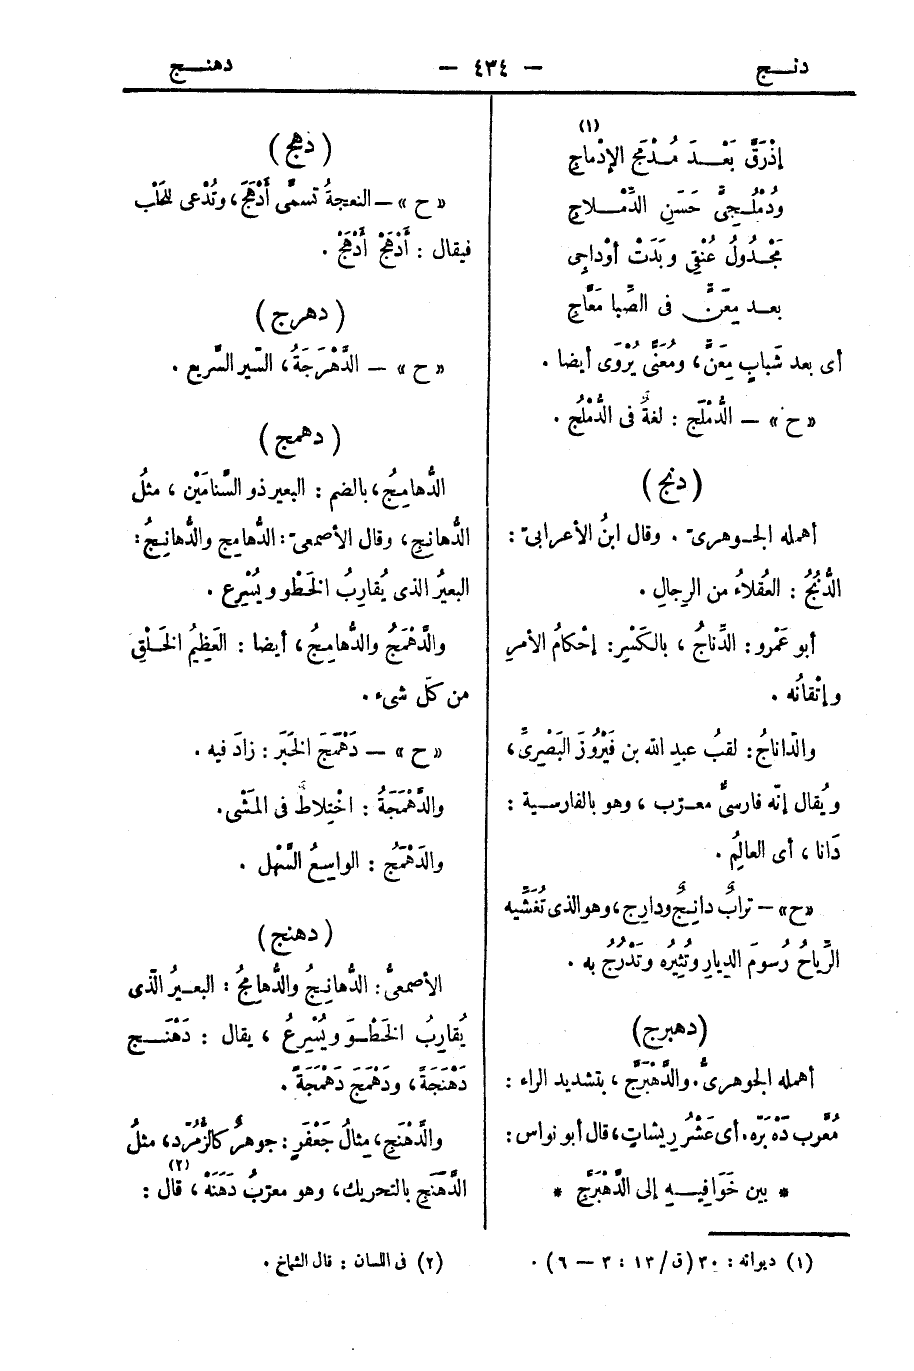 دنج
— ٤٣٤ —
دهنج
(١)
إذْرَقَّ بَعْدَ مُدْمَجِ الإدْماجِ
ودُمْلُجِىَّ حَسَنِ الدِّمْلاجِ
مَجْدُولُ عُنْقِى وبَدَتْ أوْداجِى
بعد مِعَنٍّ فى الصِّبا مَعَّاجِ
أى بعد شَبابٍ مِعَنٍّ، ومُعَنًّى يُرْوَى أيضا .
«ح» — الدُّمْلَج : لغةٌ فى الدُّمْلُج .
(دنج)
أهمله الجوهرىّ . وقال ابنُ الأعرابىّ :
الدُّنُجُ : العُقلاءُ من الرِجالِ .
أبو عَمْرو : الدِّناجُ ، بالكَسْرِ : إحْكامُ الأمْرِ
وإتْقانُه .
والدّاناجُ : لقبُ عبدِ الله بن فَيْرُوزَ البَصْرِىّ،
ويُقال إنّه فارسىٌّ معرّب ، وهو بالفارسية :
دَانا ، أى العالِمُ .
«ح» — ترابٌ دانِجٌ ودارِج، وهو الذى تُغَشِّيه
الرِّياحُ رُسومَ الديارِ وتُثِيرُه وتَدْرُجُ به .
(دهبرج)
أهمله الجوهرىُّ. والدَّهْبَرَّج ، بتشديد الراء :
مُعَّرب دَهْ بَرَّه. أى عَشْرُ رِيشاتٍ، قال أبو نواس :
* بين خَوَافِيهِ إلى الدَّهْبَرَّجِ *
(١) ديوانه : ٣٠ (ق/ ١٣ : ٣ — ٦) .
(دهج)
«ح» — النعجةُ تسمَّى أَدْهَجَ، وتُدْعى للحَلْب
فيقال : أَدْهَجْ أَدْهَجْ .
(دهرج)
«ح» — الدَّهْرَجَةُ، السّير السَّريع .
(دهمج)
الدُّهامِجُ، بالضم : البعير ذو السَّنامَيْن ، مثلُ
الدُّهانِجِ، وقال الأصمعىّ : الدُّهامِج والدُّهانِجُ :
البعيرُ الذى يُقارِبُ الخَطْو ويُسْرِع .
والدَّهْمَجُ والدُّهامِجُ، أيضا : العَظِيمُ الخَلْقِ
من كلّ شىء .
«ح» — دَهْمَجَ الخَبَرَ : زادَ فيه .
والدَّهْمَجَةُ : اخْتِلاطٌ فى المَشْى.
والدَهْمَجُ : الواسِعُ السَّهْل .
(دهنج)
الأصمعىُّ : الدُّهانِجُ والدُّهامِجُ : البعيرُ الذّى
يُقارِبُ الخَطْوَ ويُسْرِعُ ، يقال : دَهْنَجَ
دَهْنَجَةً، ودَهْمَجَ دَهْمَجَةً .
والدَّهْنَجِ، مِثالُ جَعْفَرٍ : جوهرٌ كالزُّمُرّد، مثلُ
الدَّهَنَجِ بالتحريك، وهو معرّبُ دَهَنَهْ (٢)، قال :
(٢) فى اللسان : قال الشماخ .